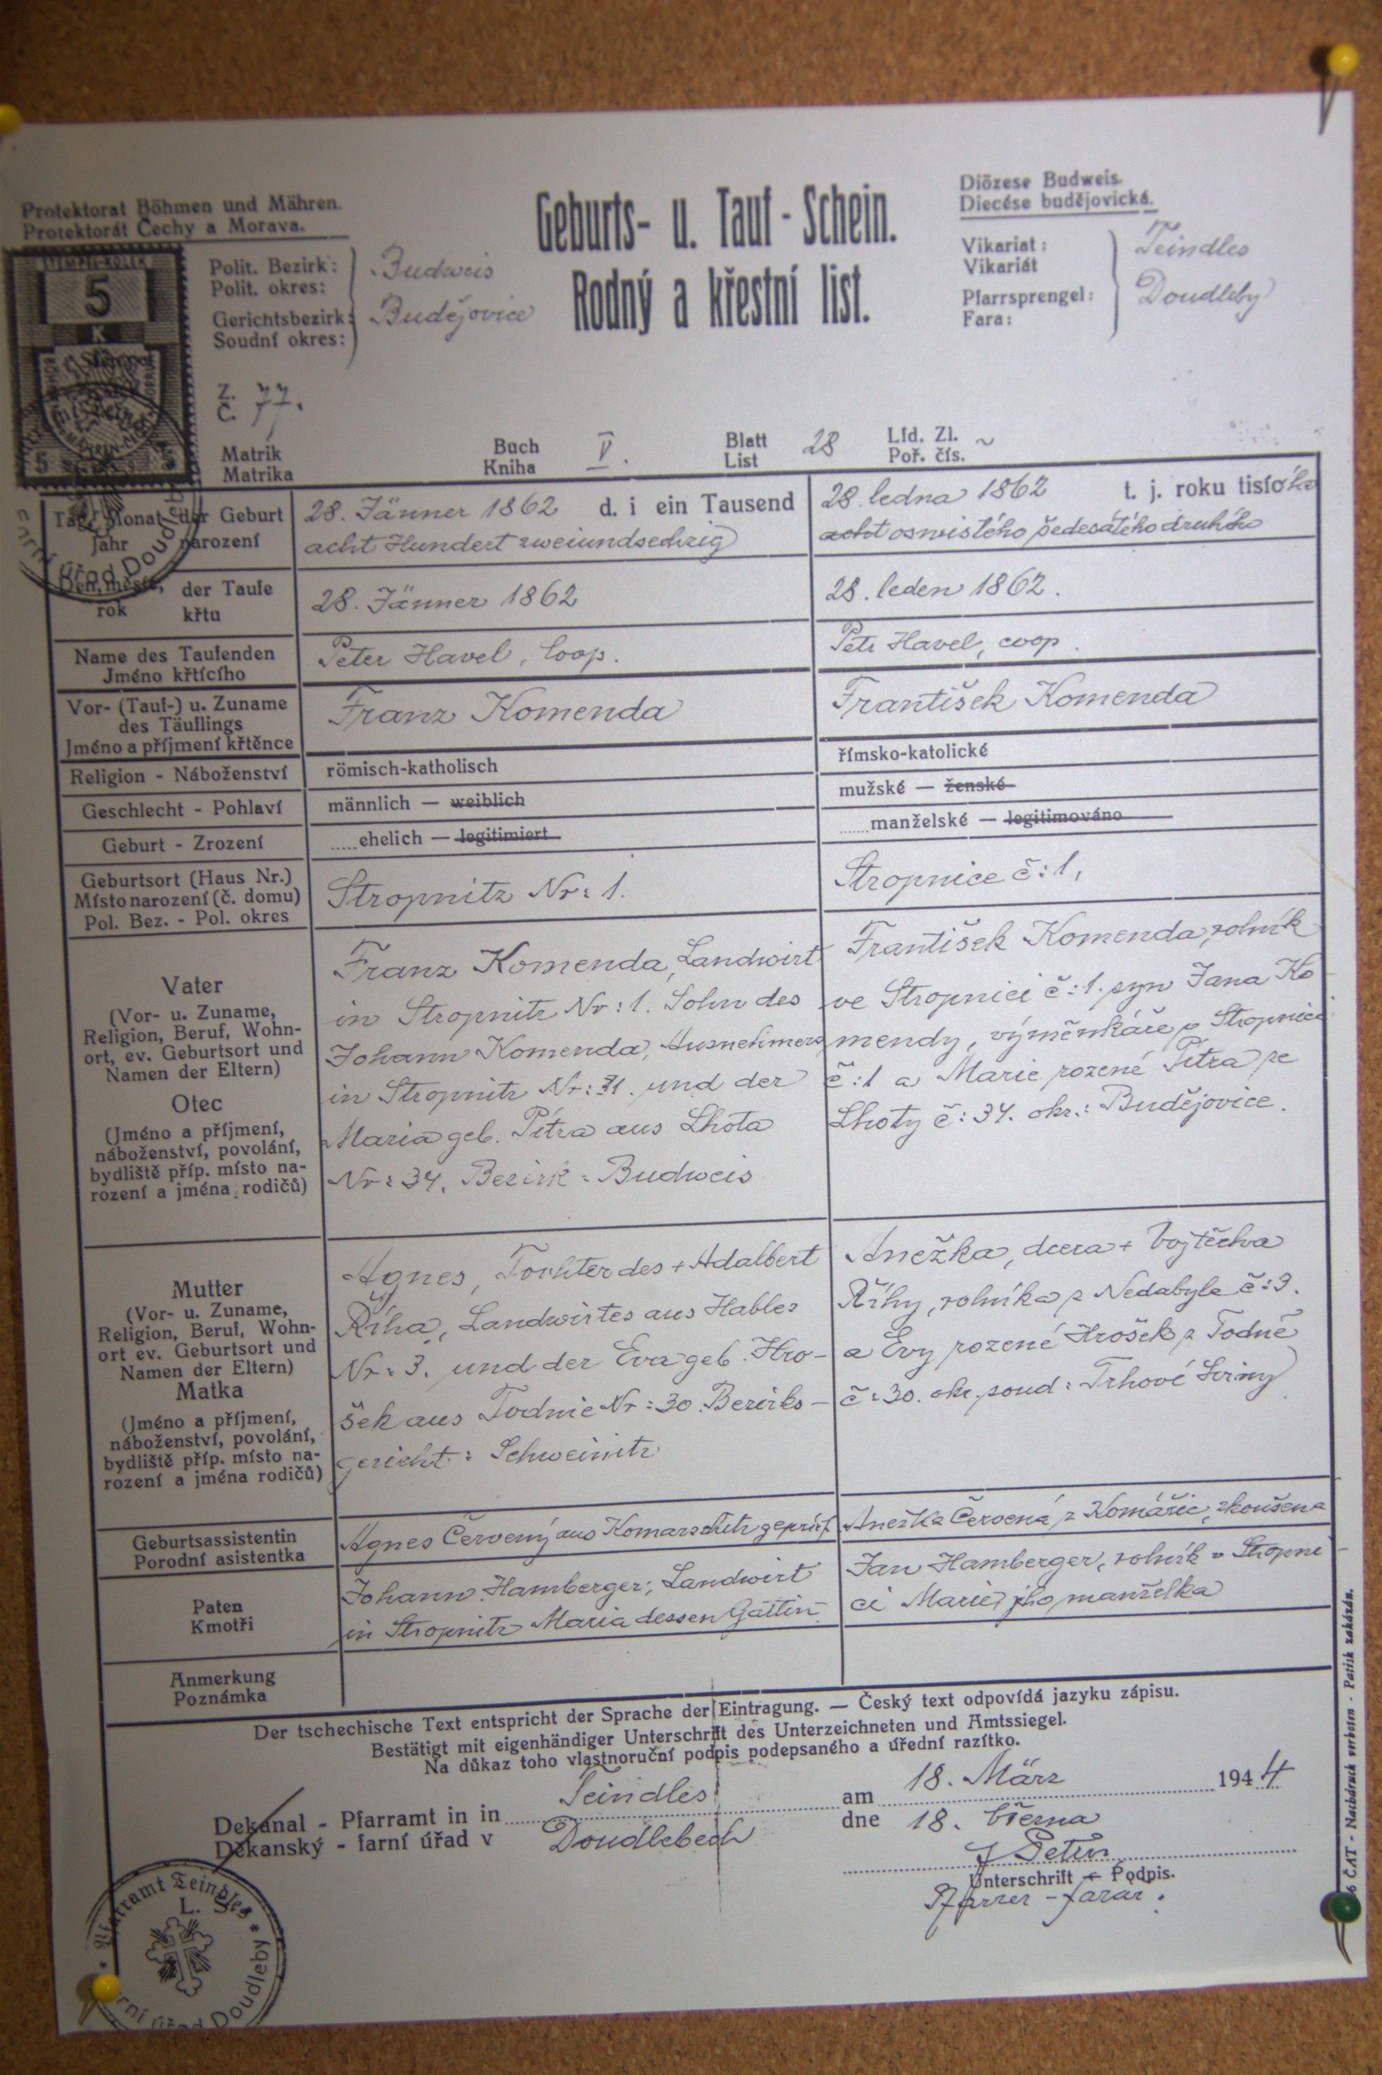 Protektorat Böhmen und Mähren.
Protektorát Čechy a Morava.
Geburts- u. Tauf-Schein.
Rodný a křestní list.
Diözese Budweis.
Diecése budějovická.
Polit. Bezirk: Budweis
Polit. okres:
Gerichtsbezirk: Budějovice
Soudní okres:
Vikariat: Teindles
Vikariát
Pfarrsprengel: Doudleby
Fara:
5
K
5 5
Z. 77.
Č.
Matrik Buch V. Blatt 28 Lfd. Zl. ~
Matrika Kniha List Poř. čís.
Tag, Monat, der Geburt 28. Jänner 1862 d. i ein Tausend 28. ledna 1862 t. j. roku tisícího
Jahr narození acht Hundert zweiundsechzig acht osmistého šedesátého druhého
Den, měsíc, der Taufe 28. Jänner 1862 28. leden 1862.
rok křtu
Name des Taufenden Peter Havel, Coop. Petr Havel, coop.
Jméno křtícího
Vor- (Tauf-) u. Zuname Franz Komenda František Komenda
des Täuflings
Jméno a příjmení křtěnce
Religion - Náboženství römisch-katholisch římsko-katolické
Geschlecht - Pohlaví männlich — weiblich mužské — ženské
Geburt - Zrození ehelich — legitimiert manželské — legitimováno
Geburtsort (Haus Nr.) Stropnitz Nr: 1. Stropnice č:1,
Místo narození (č. domu)
Pol. Bez. - Pol. okres
Vater
(Vor- u. Zuname,
Religion, Beruf, Wohn-
ort, ev. Geburtsort und
Namen der Eltern)
Otec
(Jméno a příjmení,
náboženství, povolání,
bydliště příp. místo na-
rození a jména rodičů)
Franz Komenda, Landwirt
in Stropnitz Nr:1. Sohn des
Johann Komenda, Ausnehmers
in Stropnitz Nr: 1. und der
Maria geb. Pítra aus Lhota
Nr: 34. Bezirk: Budweis
František Komenda, rolník
ve Stropnici č:1. syn Jana Ko
mendy, výměnkáře z Stropnici
č:1 a Marie rozené Pítra ze
Lhoty č: 34. okr.: Budějovice.
Mutter
(Vor- u. Zuname,
Religion, Beruf, Wohn-
ort ev. Geburtsort und
Namen der Eltern)
Matka
(Jméno a příjmení,
náboženství, povolání,
bydliště příp. místo na-
rození a jména rodičů)
Agnes, Tochter des + Adalbert
Říha, Landwirtes aus Hables
Nr: 3. und der Eva geb. Hro-
šek aus Todnie Nr: 30. Bezirks-
gericht: Schweinitz
Anežka, dcera + Vojtěcha
Říhy, rolníka z Nedabyle č:3.
a Evy rozené Hrošek z Todně
č: 30. okr. soud: Trhové Sviny
Geburtsassistentin Agnes Červený aus Komarschitz geprüf Anežka Červená z Komářic, zkoušena
Porodní asistentka
Paten Johann Hamberger, Landwirt Jan Hamberger, rolník v Stropni
Kmotři in Stropnitz Maria dessen Gattin ci Marie, jeho manželka
Anmerkung
Poznámka
Der tschechische Text entspricht der Sprache der Eintragung. — Český text odpovídá jazyku zápisu.
Bestätigt mit eigenhändiger Unterschrift des Unterzeichneten und Amtssiegel.
Na důkaz toho vlastnoruční podpis podepsaného a úřední razítko.
Dekanal - Pfarramt in in Teindles am 18. März 1944
Děkanský - farní úřad v Doudlebech dne 18. března
Unterschrift — Podpis.
Pfarrer - farář.
L. S.
Pfarramt Teindles
farní úřad Doudleby
ČAT - Nachdruck verboten - Patisk zakázán.